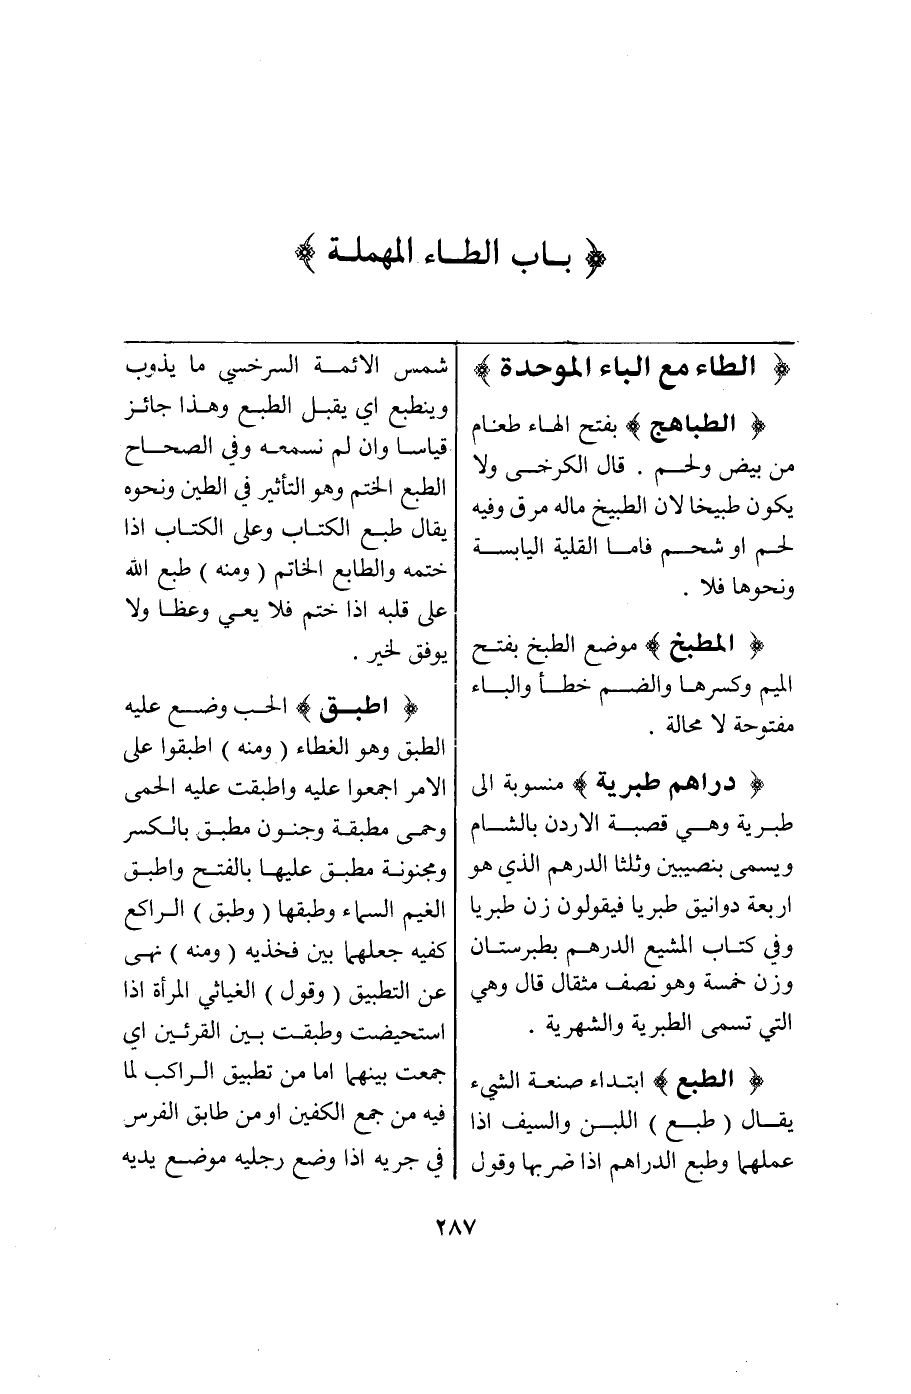 ﴿ بــاب الطــاء المهملــة ﴾
﴿ الطاء مع الباء الموحدة ﴾
﴿ الطباهج ﴾ بفتح الهاء طعام
من بيض ولحـم . قال الكرخـى ولا
يكون طبيخا لان الطبيخ ماله مرق وفيه
لحـم او شحـم فامـا القلية اليابسـة
ونحوها فلا .
﴿ المطبخ ﴾ موضع الطبخ بفتـح
الميم وكسرهـا والضـم خطـأ والبـاء
مفتوحة لا محالة .
﴿ دراهم طبرية ﴾ منسوبة الى
طبـرية وهـي قصبـة الاردن بالشـام
ويسمى بنصيبين وثلثا الدرهـم الذي هو
اربعة دوانيق طبريا فيقولون زن طبريا
وفي كتـاب المشيع الدرهـم بطبرستـان
وزن خمسة وهو نصف مثقال قال وهي
التي تسمى الطبرية والشهرية .
﴿ الطبع ﴾ ابتداء صنعة الشيء
يقـال ( طبـع ) اللبـن والسيف اذا
عملهما وطبع الدراهم اذا ضربها وقول
شمس الائمـة السرخسي ما يذوب
وينطبع اي يقبـل الطبـع وهـذا جائـز
قياسـا وان لم نسمعـه وفي الصحـاح
الطبع الختم وهو التأثير في الطين ونحوه
يقال طبـع الكتـاب وعلى الكتـاب اذا
ختمه والطابع الخاتم ( ومنه ) طبع الله
على قلبه اذا ختم فلا يعـي وعظـا ولا
يوفق لخير .
﴿ اطبـق ﴾ الحـب وضـع عليه
الطبق وهو الغطاء ( ومنه ) اطبقوا على
الامر اجمعوا عليه واطبقت عليه الحمى
وحمى مطبقة وجنون مطبق بالـكسر
ومجنونـة مطبق عليهـا بالفتـح واطبـق
الغيم السماء وطبقها ( وطبق ) الـراكع
كفيه جعلهما بين فخذيه ( ومنه ) نهـى
عن التطبيق ( وقول ) الغياثي المرأة اذا
استحيضت وطبقـت بيـن القرئـين اي
جمعت بينهما اما من تطبيق الـراكب لما
فيه من جمع الكفين او من طابق الفرس
في جريه اذا وضع رجليه موضـع يديه
٢٨٧